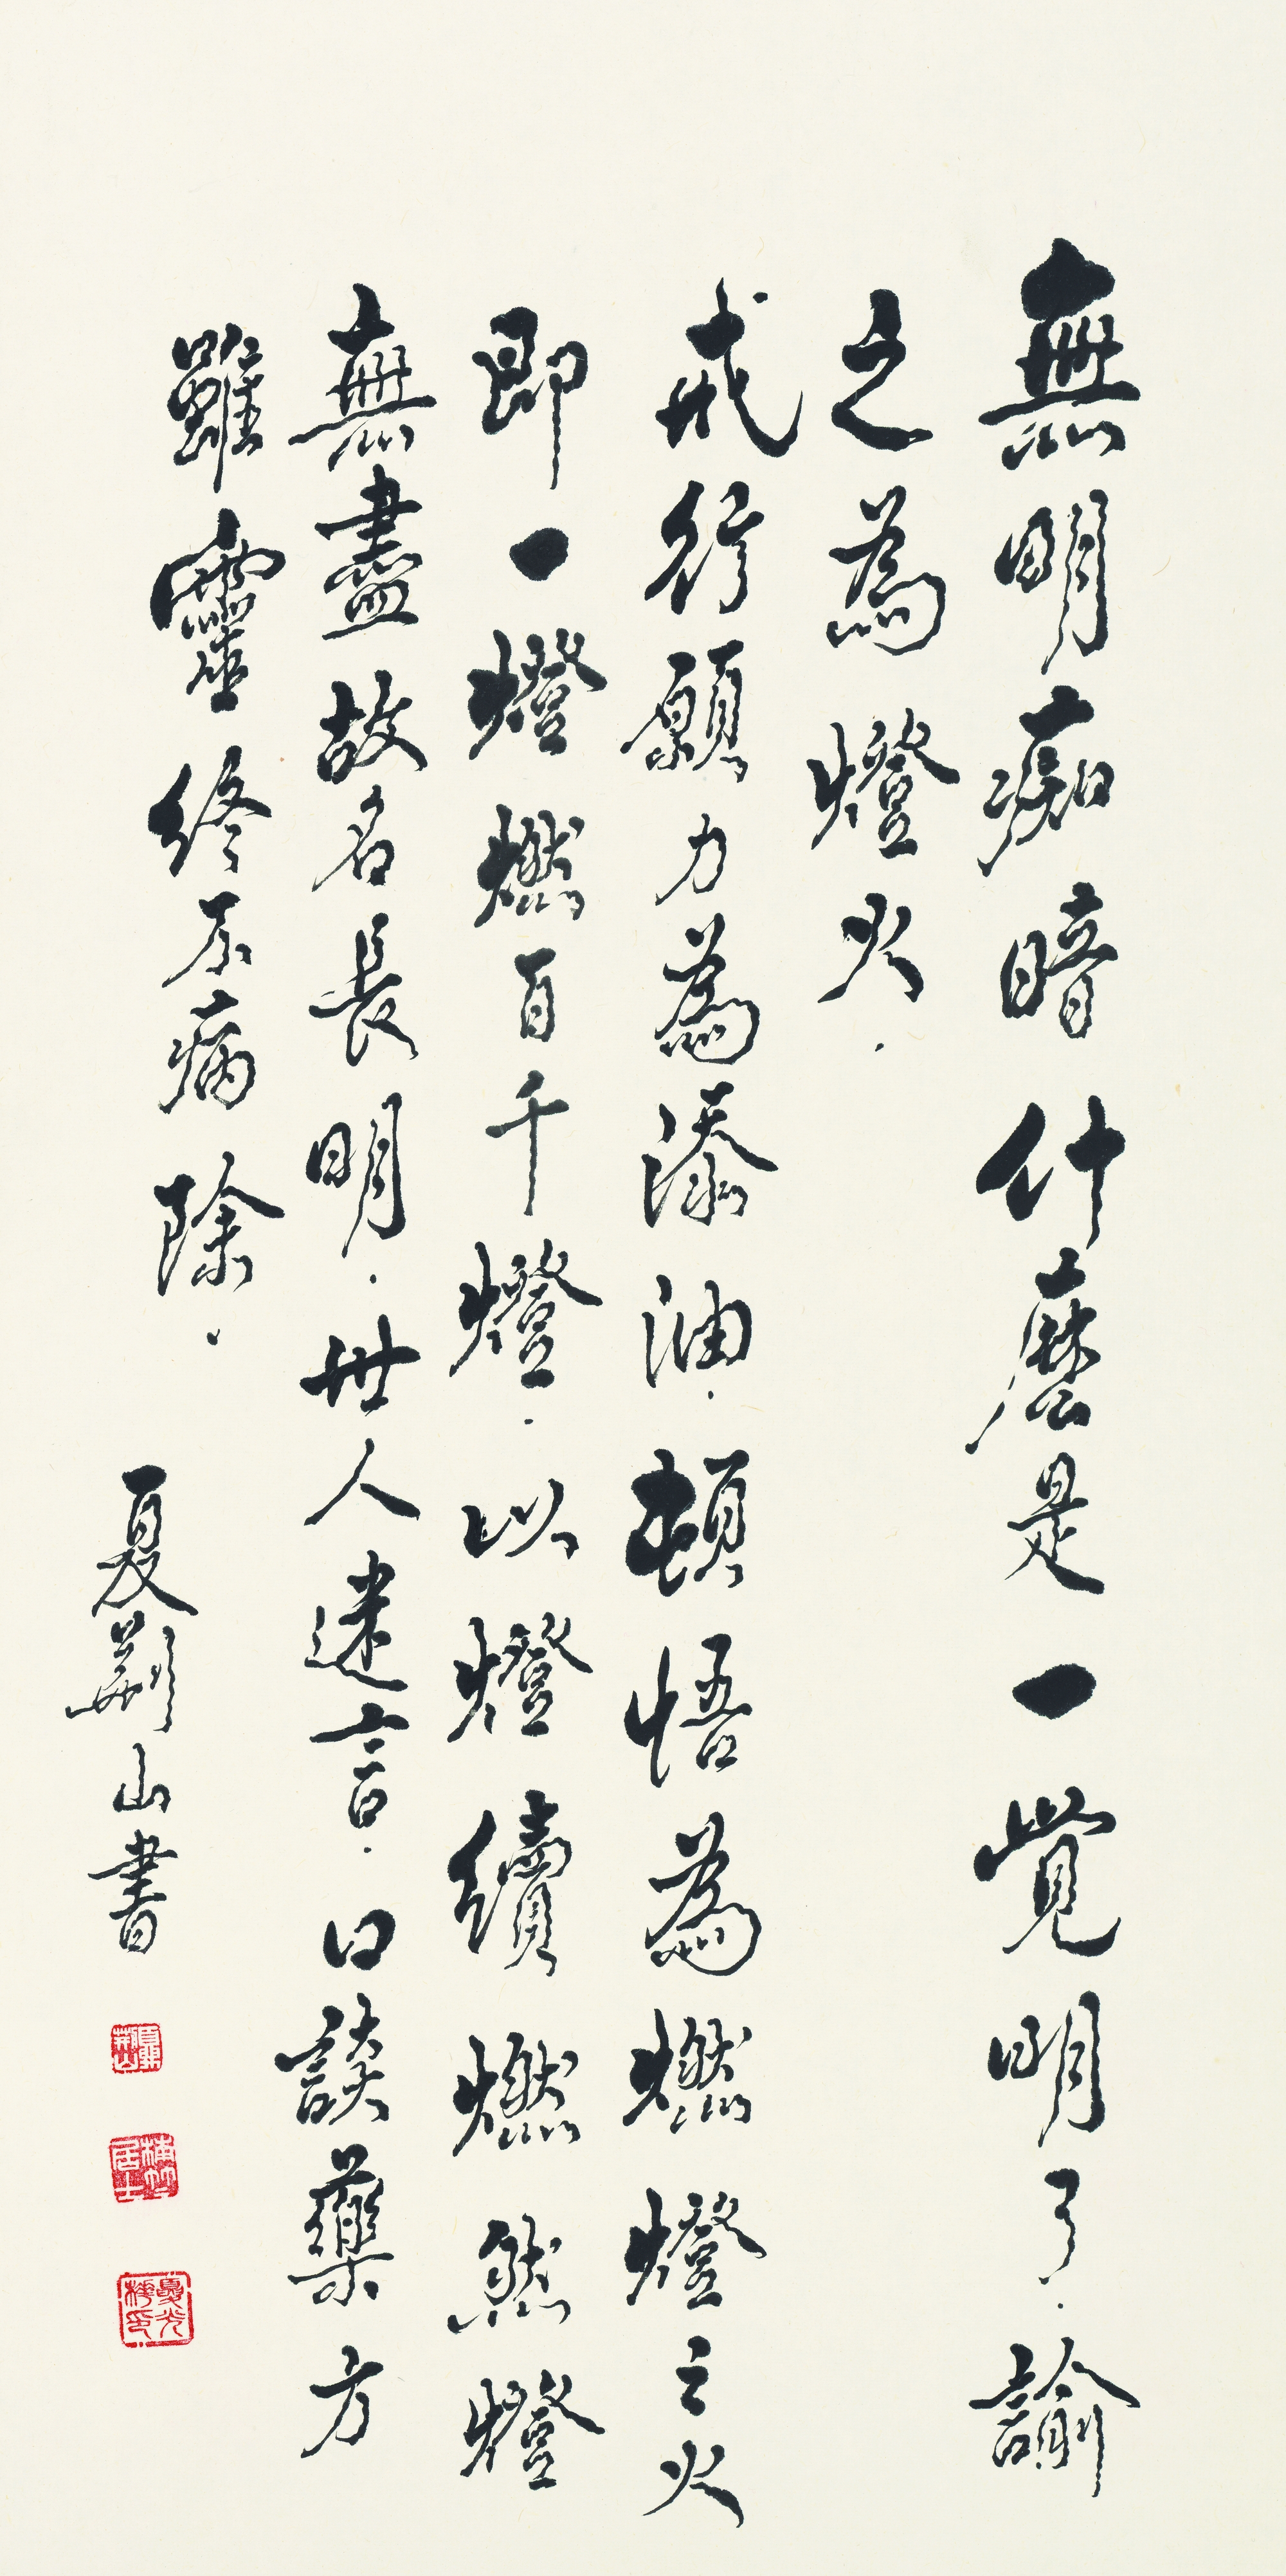 無明痴暗什麼是一覺明了.諭
之為燈火.
戒行願力為添油.頓悟為燃燈之火
即一燈燃百千燈.以燈續燃然燈
無盡故名長明.世人迷言.口談藥方
雖靈終不病除.
夏荊山書
夏荊山
居士